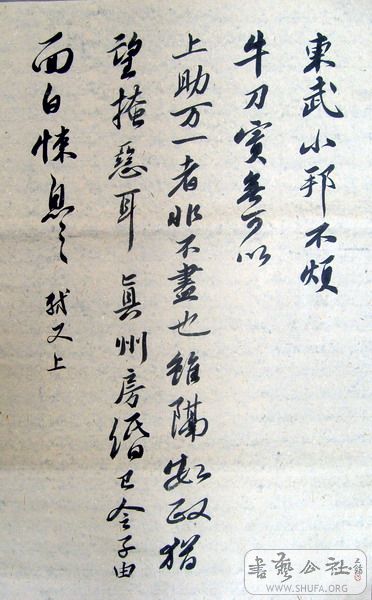 東武小邦不煩
牛刀實無可以
上助万一者非不盡也雖隔數政猶
望掩惡耳 真州房緡已令子由
面白悚息〻 軾又上
書藝公社
WWW.SHUFA.ORG